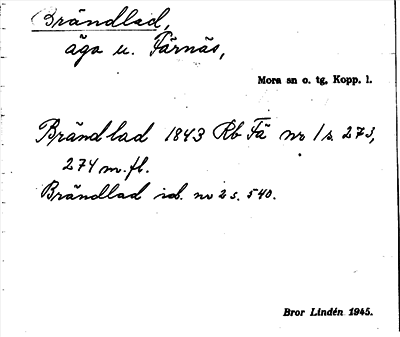 Brändlad,
äga u. Färnäs,
Mora sn o. tg, Kopp. l.
Brändlad 1843 Rb Fä nr 1 s. 273,
274 m. fl.
Brändlad ib. nr 2 s. 540.
Bror Lindén 1945.